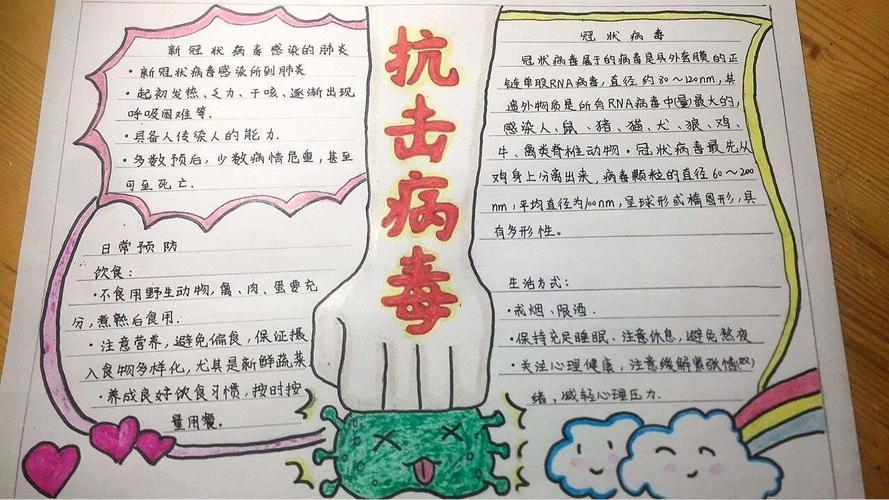 新冠状病毒感染的肺炎
·新冠状病毒感染所到肺炎
·起初发热、乏力、干咳、逐渐出现
呼吸困难等.
·具备人传染人的能力.
·多数预后,少数病情危重,甚至
可至死亡.
日常预防
饮食:
·不食用野生动物,禽、肉、蛋要充
分,煮熟后食用.
·注意营养,避免偏食,保证摄
入食物多样化,尤其是新鲜蔬菜
·养成良好饮食习惯,按时按
量用餐.
抗击病毒
冠状病毒
冠状病毒属于的病毒是具外套膜的正
链单股RNA病毒,直径约80~120nm,其
遗外物质是所有RNA病毒中(量)最大的,
感染人、鼠、猪、猫、犬、狼、鸡、
牛、禽类脊椎动物·冠状病毒最先从
鸡身上分离出来,病毒颗粒的直径60~200
nm,平均直径为100nm,呈球形或椭圆形,具
有多形性。
生活方式:
·戒烟、限酒.
·保持充足睡眠、注意休息,避免熬夜
·关注心理健康,注意缓解紧张情(怒)
绪,减轻心理压力.